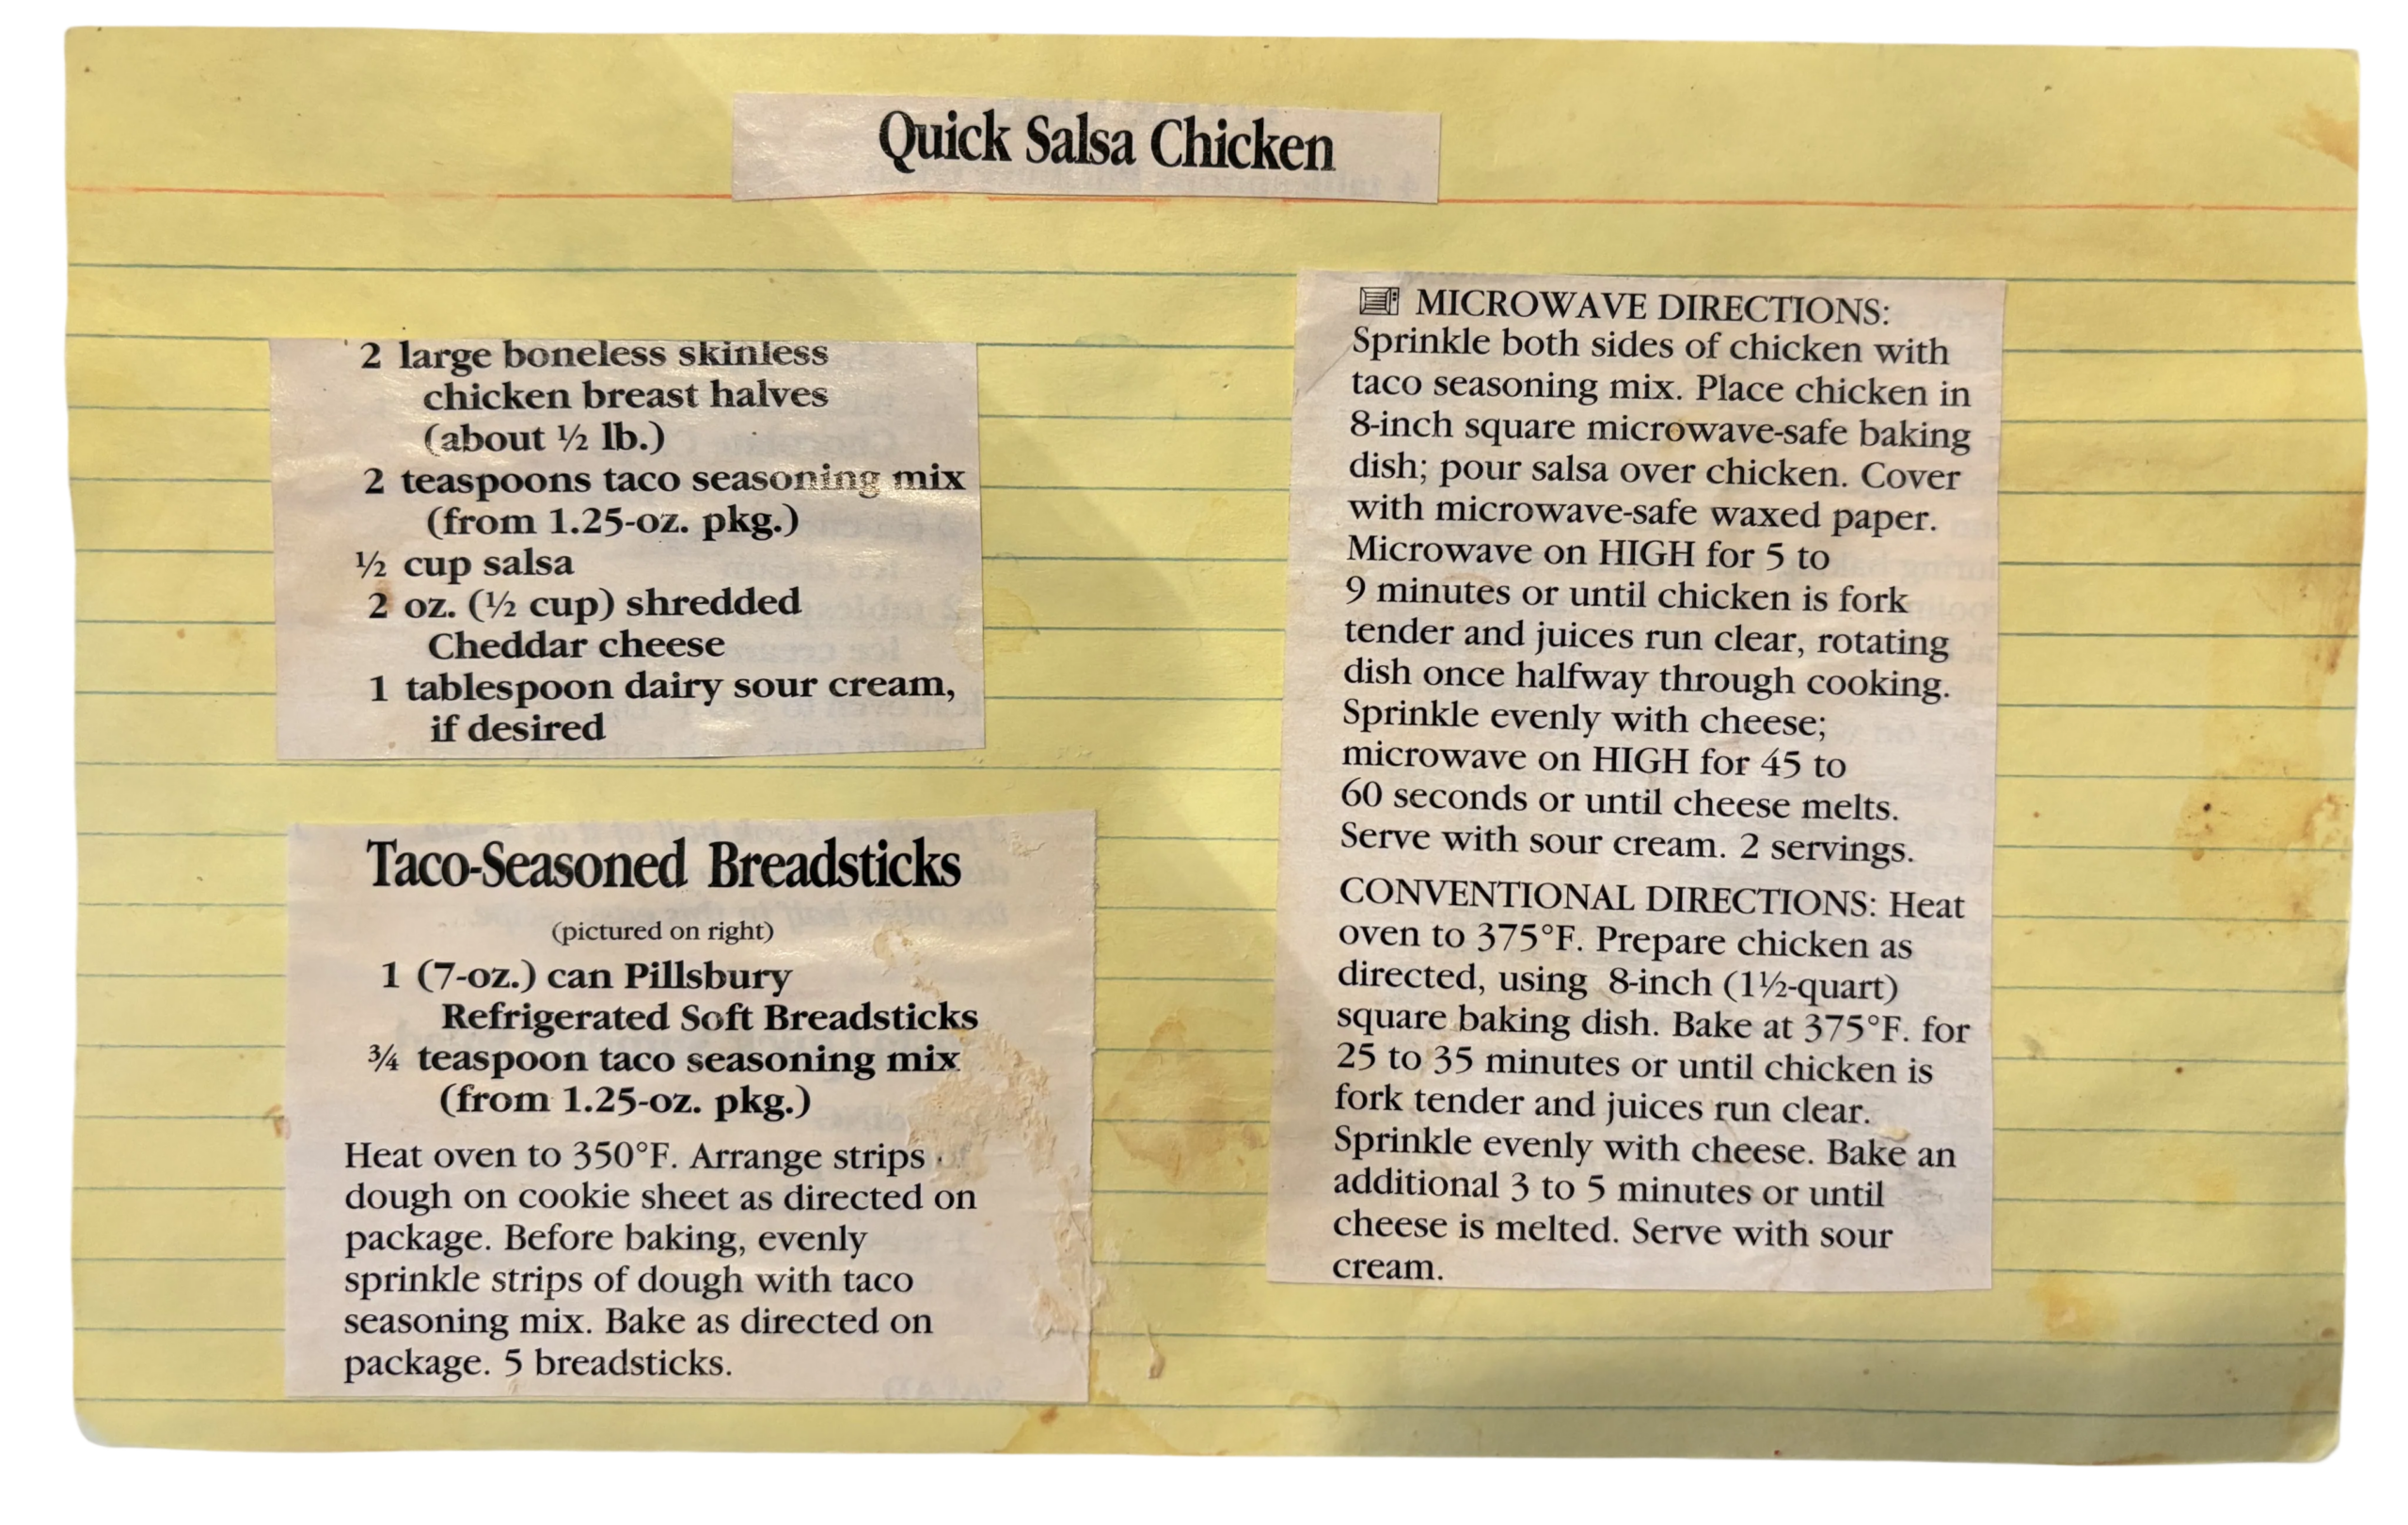 Quick Salsa Chicken
2 large boneless skinless
chicken breast halves
(about ½ lb.)
2 teaspoons taco seasoning mix
(from 1.25-oz. pkg.)
½ cup salsa
2 oz. (½ cup) shredded
Cheddar cheese
1 tablespoon dairy sour cream,
if desired
Taco-Seasoned Breadsticks
(pictured on right)
1 (7-oz.) can Pillsbury
Refrigerated Soft Breadsticks
¾ teaspoon taco seasoning mix
(from 1.25-oz. pkg.)
Heat oven to 350°F. Arrange strips of
dough on cookie sheet as directed on
package. Before baking, evenly
sprinkle strips of dough with taco
seasoning mix. Bake as directed on
package. 5 breadsticks.
MICROWAVE DIRECTIONS:
Sprinkle both sides of chicken with
taco seasoning mix. Place chicken in
8-inch square microwave-safe baking
dish; pour salsa over chicken. Cover
with microwave-safe waxed paper.
Microwave on HIGH for 5 to
9 minutes or until chicken is fork
tender and juices run clear, rotating
dish once halfway through cooking.
Sprinkle evenly with cheese;
microwave on HIGH for 45 to
60 seconds or until cheese melts.
Serve with sour cream. 2 servings.
CONVENTIONAL DIRECTIONS: Heat
oven to 375°F. Prepare chicken as
directed, using 8-inch (1½-quart)
square baking dish. Bake at 375°F. for
25 to 35 minutes or until chicken is
fork tender and juices run clear.
Sprinkle evenly with cheese. Bake an
additional 3 to 5 minutes or until
cheese is melted. Serve with sour
cream.